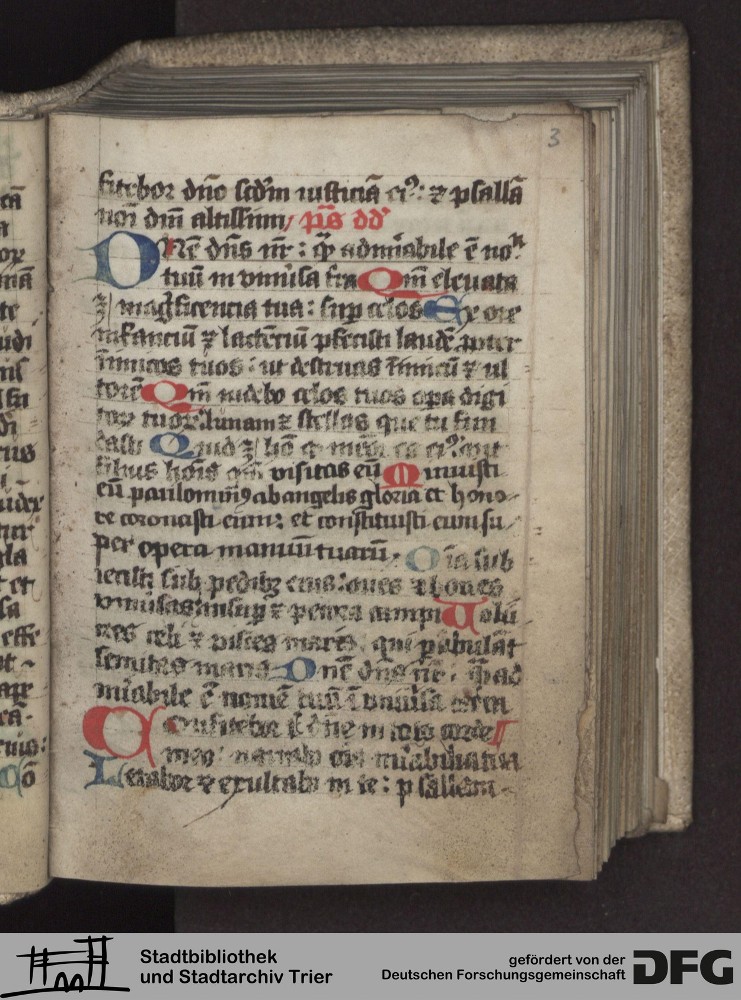 3
fitebor dño scdm iusticiā eiꝰ: ⁊ psallā
noī dñi altissimi p̄s dd
DNē dñs nr̄: q̄ admirabile ē no
tuū in vniūsa tra Qm̄ eleuata
ē magificencia tua: sup celos Ex ore
infanciū ⁊ lactēciū pfecisti laudē ꝓpter
īnimicos tuos: ut destruas īnimicū ⁊ ul
torē Qm̄ uidebo celos tuos opa digi
toꝝ tuoꝝ: lunam ⁊ stellas que tu fun
dasti Quid ē hō ꝙ memor es eiꝰ: aut
filius hoīs qm̄ visitas eū Minuisti
eū paulominꝰ ab angelis gloria et hono
re coronasti eum: et constituisti eum su
per opera manuū tuarū, Oīa sub
iecisti sub pedibꝫ eius: oues ⁊ boues
vniūsas insup ⁊ pecora campi Uolu
cres celi ⁊ pisces maris, qui pābulāt
semitas maris Dnē dñs nr̄: q̄ ad
mīabile ē nomē tuū ī vniūsa terra
Confitebor t̄ dñe in toto corde
meo: narrabo oīa mīabilia tua
Letabor ⁊ exultabo in te: psallam
Stadtbibliothek
und Stadtarchiv Trier
gefördert von der
Deutschen Forschungsgemeinschaft
DFG